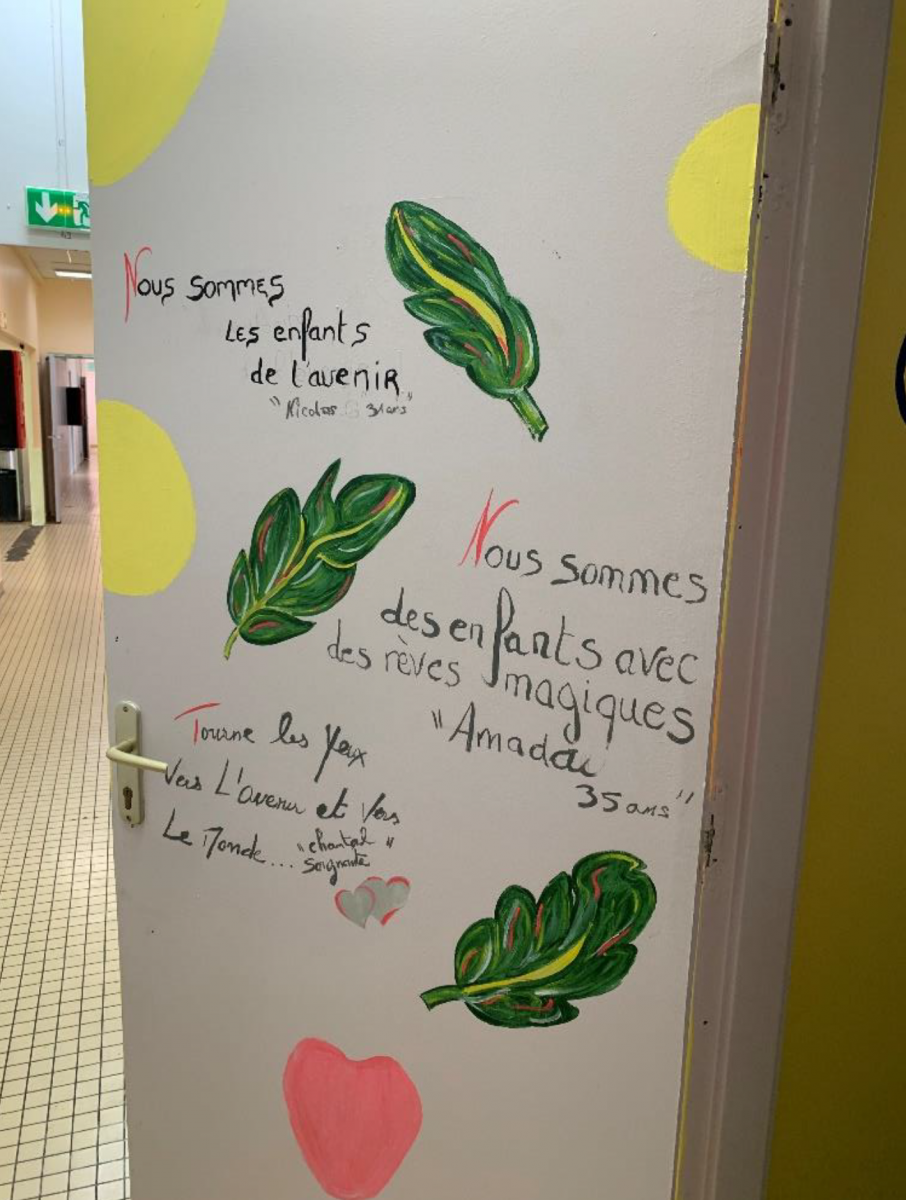 Nous sommes
Les enfants
de l'avenir
"Nicolas 31 ans"
Nous sommes
des enfants avec
des rêves magiques
"Amadou
35 ans"
Tourne les Yeux
Vers L'avenir et Vers
Le Monde... "chantal"
Soignante